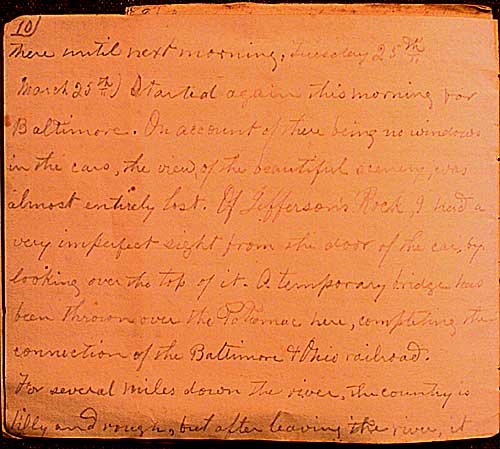 10)
there until next morning, Tuesday 25th
March 25th) Started again this morning for
Baltimore. On account of there being no windows
in the cars, the view of the beautiful scenery, was
almost entirely lost. Of Jefferson's Rock, I had a
very imperfect sight from the door of the car, by
looking over the top of it. A temporary bridge has
been thrown over the Potomac here, completing the
connection of the Baltimore & Ohio railroad.
For several miles down the river, the country is
hilly and rough, but after leaving the river, it